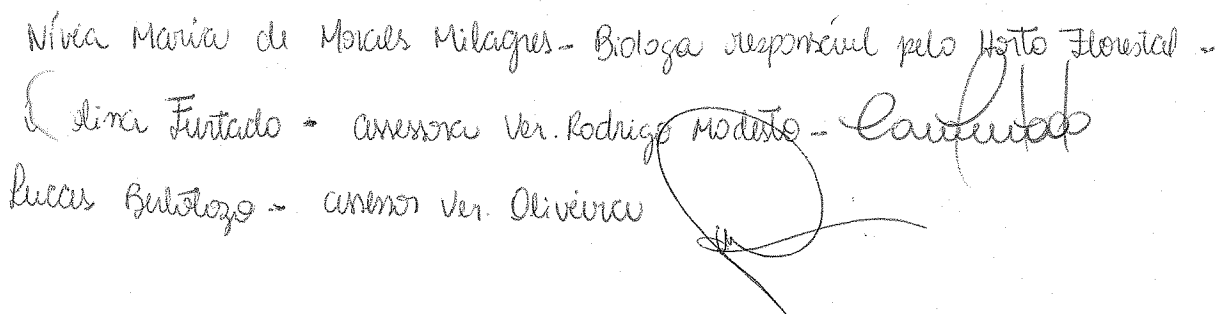 Nívea Maria de Moraes Milagres - Biologa responsável pelo Horto Florestal -
Furtado - assessora Ver. Rodrigo Modesto -
Luccas Bertolozo - assessor Ver. Oliveira